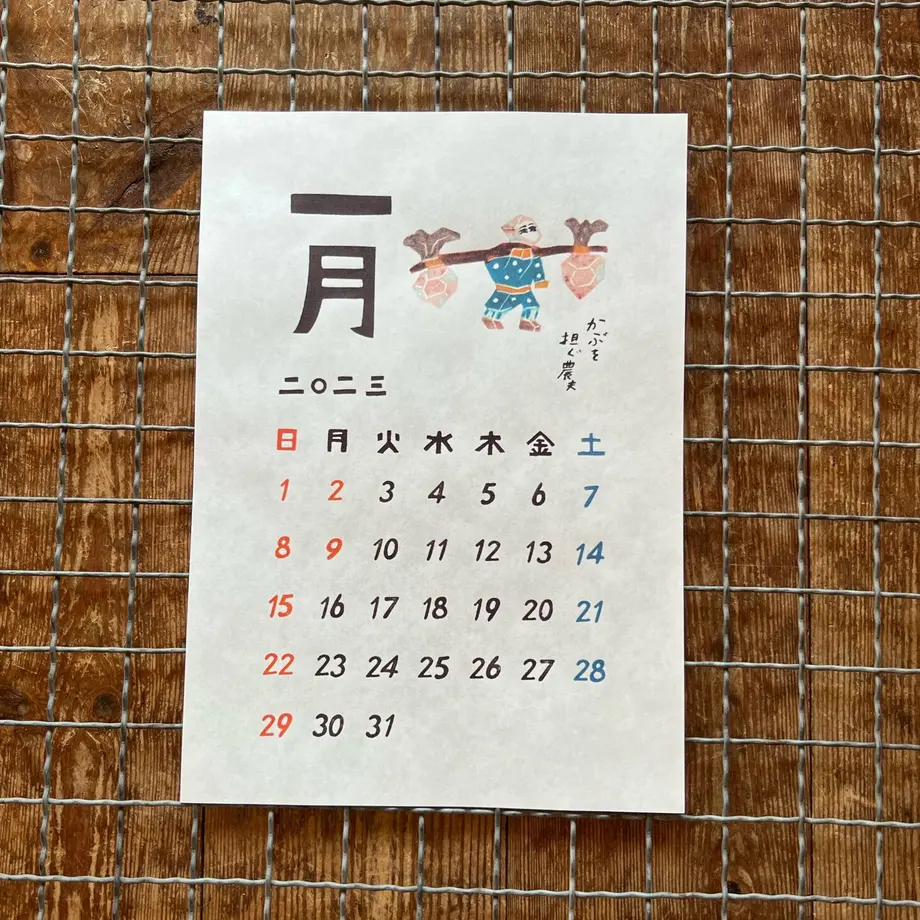 一月
かぶを
担ぐ農夫
二〇二三
日 月 火 水 木 金 土
1 2 3 4 5 6 7
8 9 10 11 12 13 14
15 16 17 18 19 20 21
22 23 24 25 26 27 28
29 30 31